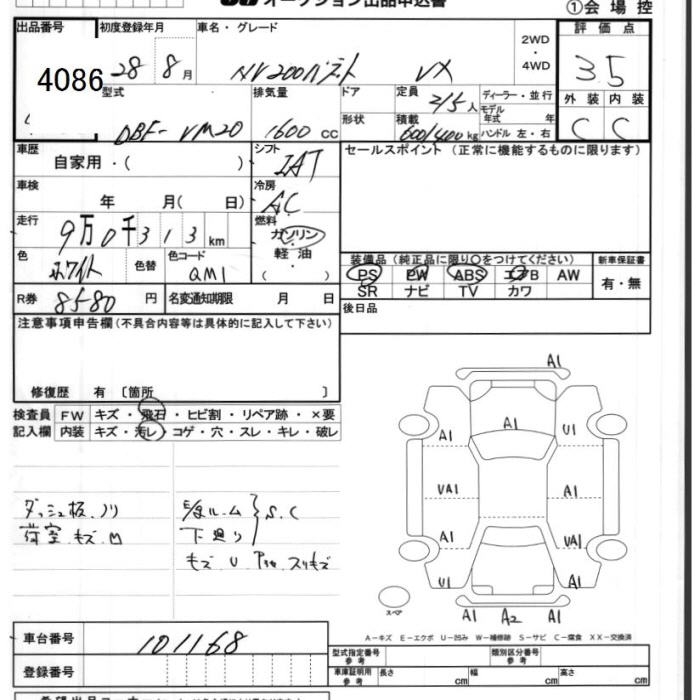 オークション出品申込書
①会場控
出品番号 初度登録年月 車名・グレード 2WD・4WD 評価点
4086 28年 8月 NV200バネット VX 3.5
型式 排気量 ドア 定員 2/5人 ディーラー・並行
モデル年式 年 外装 内装
DBF-VM20 1600cc 形状 積載 600/400kg ハンドル 左・右 C C
車歴 自家用・( ) シフト IAT セールスポイント (正常に機能するものに限ります)
車検 年 月( 日) 冷房 AC
走行 9万0千313km 燃料 ガソリン
軽油
( )
色 ホワイト 色替 色コード QM1
装備品(純正品に限り○をつけてください) 新車保証書
PS PW ABS エアB AW 有・無
SR ナビ TV カワ
R券 8580円 名変通知期限 月 日 後日品
注意事項申告欄(不具合内容等は具体的に記入して下さい)
修復歴 有 〔箇所 〕
検査員 FW キズ・飛石・ヒビ割・リペア跡・×要
記入欄 内装 キズ・汚レ・コゲ・穴・スレ・キレ・破レ
ダッシュ板、ノリ
荷室 キズ 凹
下廻り S.C
A1
A1 A1 U1
VA1 A1
A1 VA1
U1 A1
スペア A1 A2 A1
A-キズ E-エクボ U-凹み W-補修跡 S-サビ C-腐食 XX-交換済
車台番号 101168
型式指定番号 参考 類別区分番号 参考
登録番号 車庫証明用 参考 長さ cm 幅 cm 高さ cm
希望出品コーナ